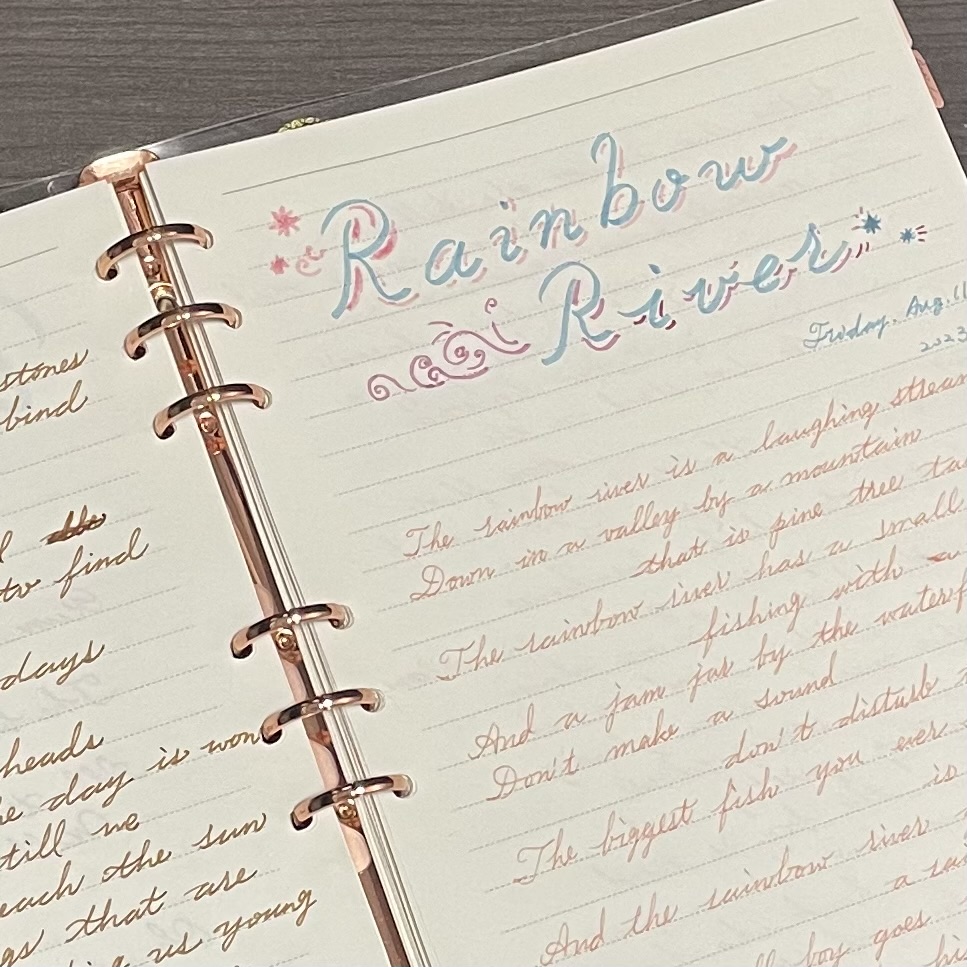 stones
bind
to find
days
heads
day is won
till we
each the sun
that are
us young
Rainbow
River
Friday. Aug. 11
2023
The rainbow river is a laughing stream
Down in a valley by a mountain
that is pine tree
The rainbow river has a small
fishing with a
And a jam jar by the
Don't make a sound
don't disturb
The biggest fish you ever
is
And the rainbow river
a
boy goes